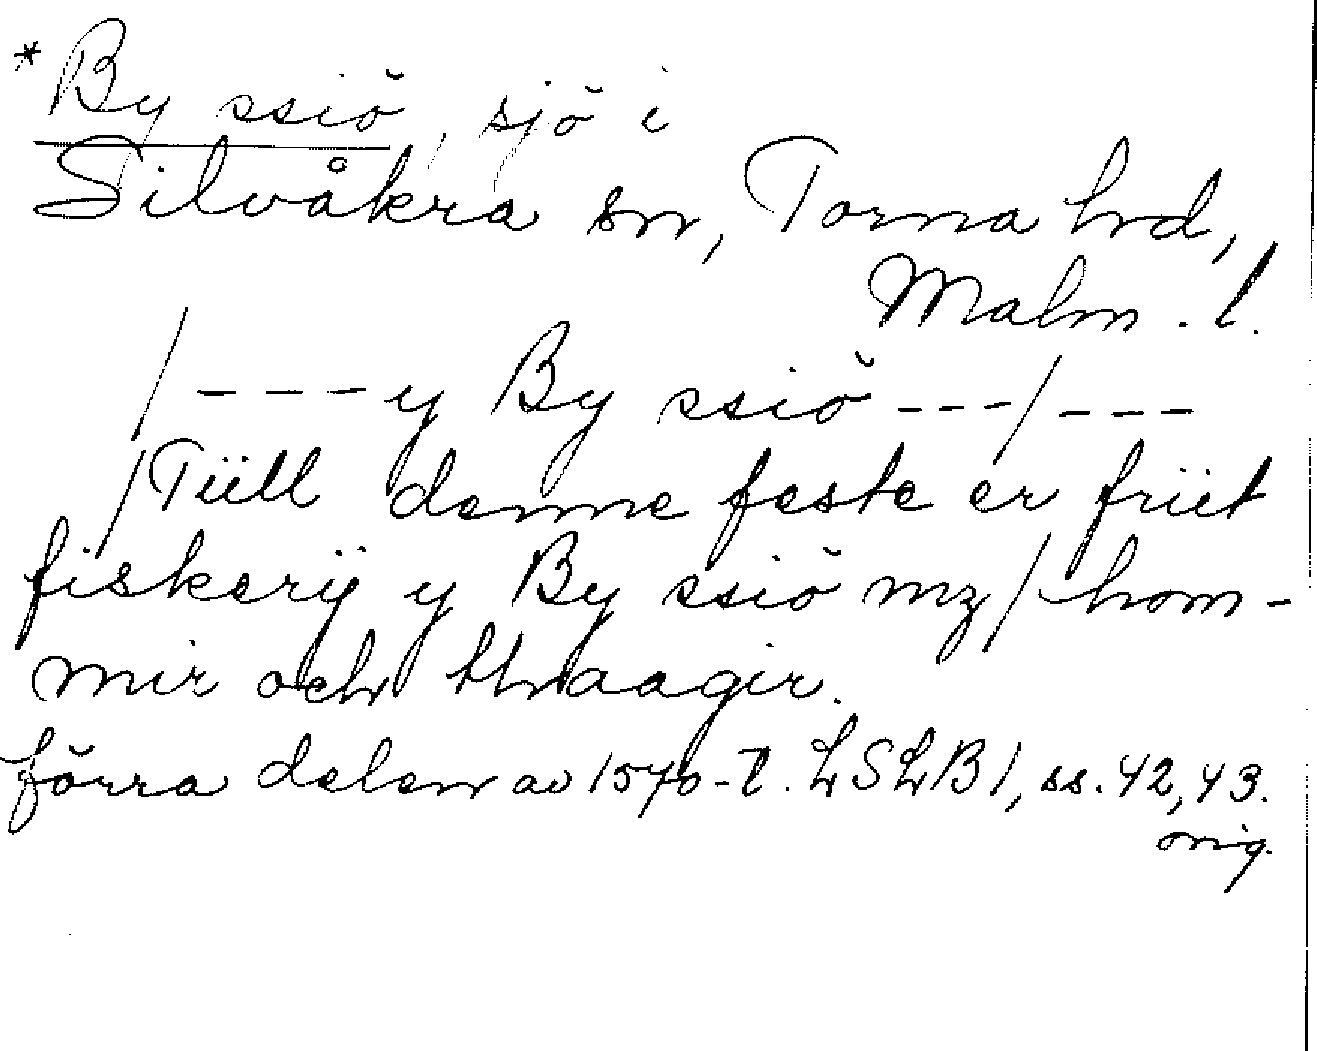 *By ssiö, sjö i
Silvåkra sn, Torna hd,
Malm. l.
/---y By ssiö---/---
/Tiill denne feste er friet
fiskerÿ y By ssiö mz/hom-
mir och thraagir.
förra delen av 1570-t. LSLB 1, ss. 42, 43.
orig.